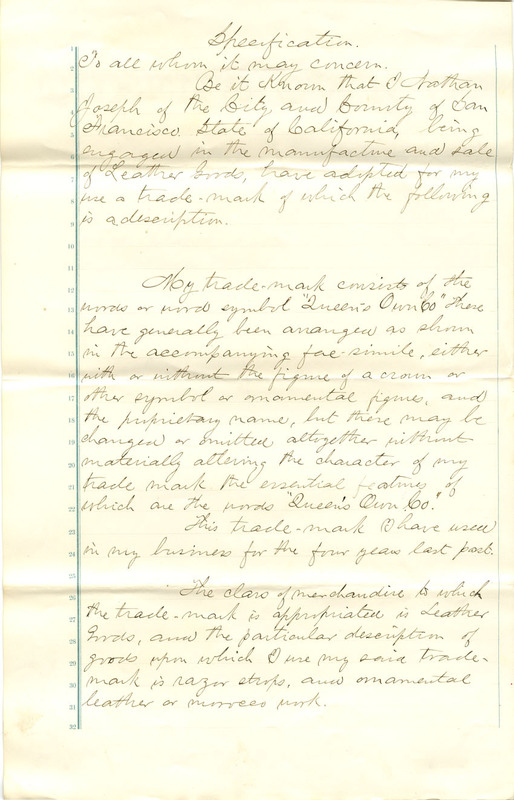 Specification.
To all whom it may concern.
Be it Known that I Nathan
Joseph of the City and County of San
Francisco State of California, being
engaged in the manufacture and sale
of Leather Goods, have adopted for my
use a trade-mark of which the following
is a description.
My trade-mark consists of the
words or word symbol "Queen's Own Co" These
have generally been arranged as shown
in the accompanying fac-simile, either
with or without the figure of a crown or
other symbol or ornamental figures, and
the proprietary name, but these may be
changed or omitted altogether without
materially altering the character of my
trade mark the essential features of
which are the words "Queen's Own Co."
This trade-mark I have used
in my business for the four years last past.
The class of merchandise to which
the trade-mark is appropriated is Leather
Goods, and the particular description of
goods upon which I use my said trade-
mark is razor strops, and ornamental
leather or morocco work.
1
2
3
4
5
6
7
8
9
10
11
12
13
14
15
16
17
18
19
20
21
22
23
24
25
26
27
28
29
30
31
32